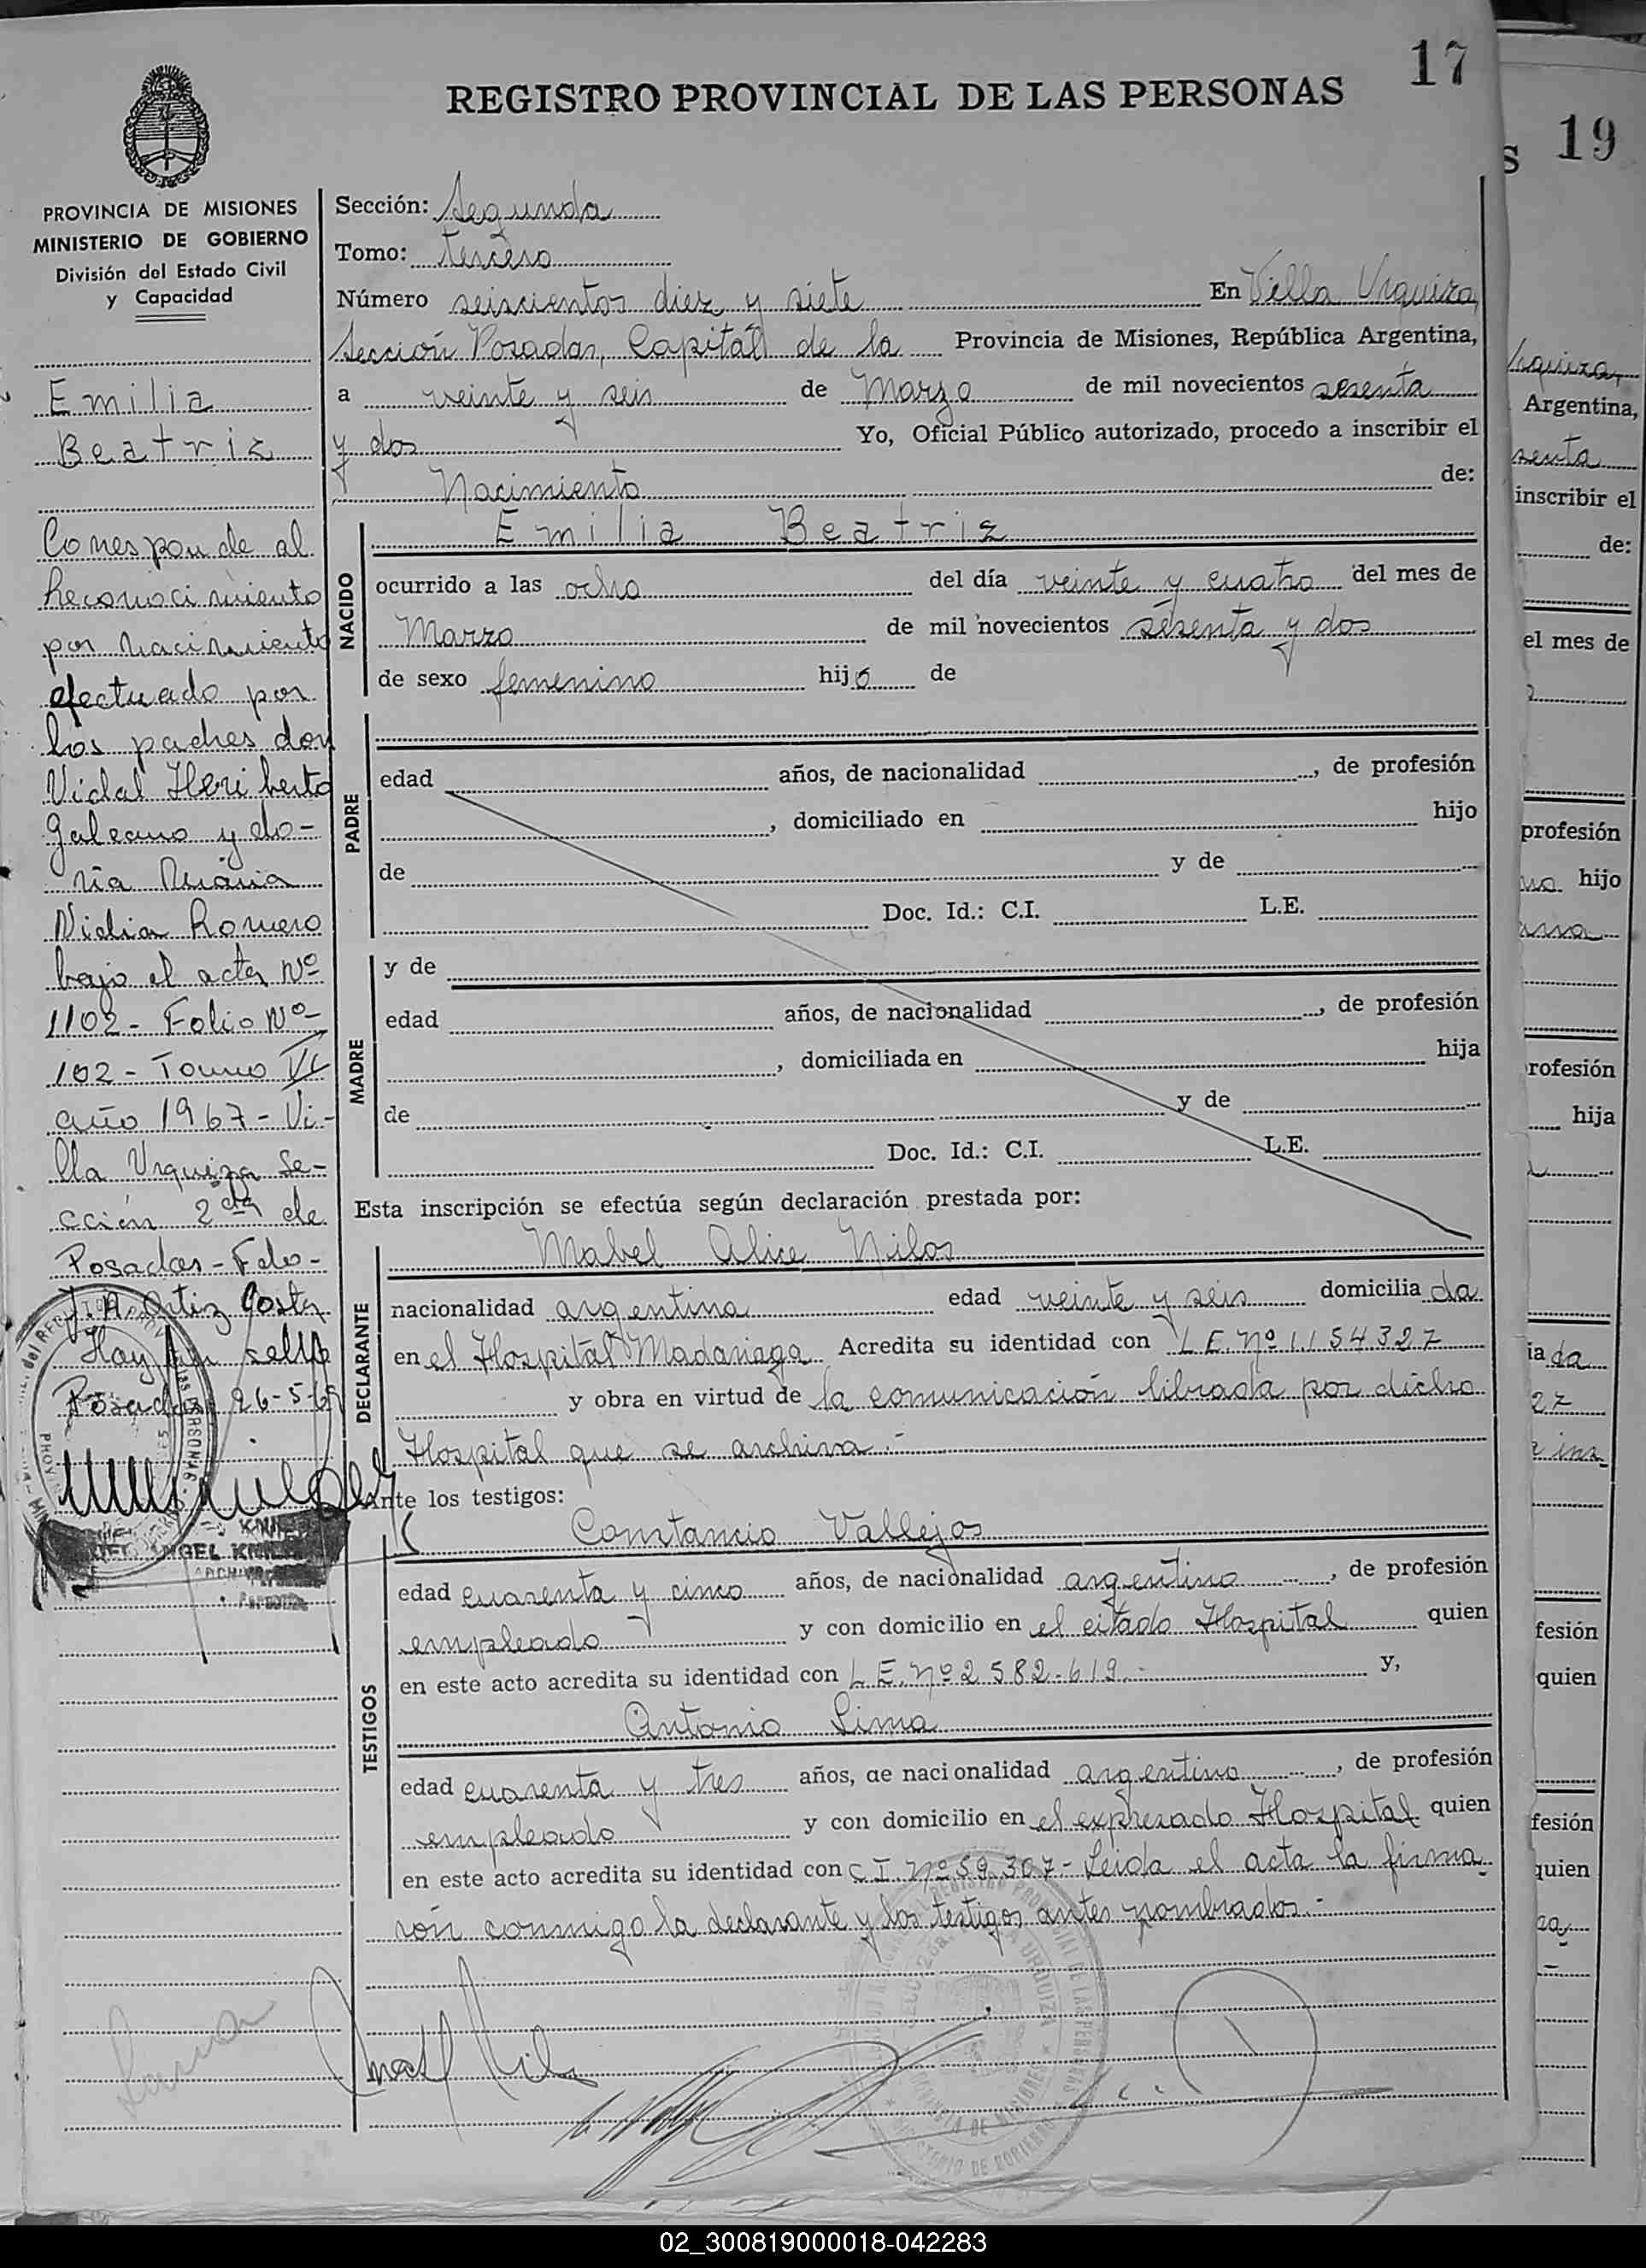 17
REGISTRO PROVINCIAL DE LAS PERSONAS
PROVINCIA DE MISIONES
MINISTERIO DE GOBIERNO
División del Estado Civil
y Capacidad
Emilia
Beatriz
Corresponde al
Reconocimiento
por nacimiento
efectuado por
los padres don
Vidal Heriberto
Galeano y do-
ña María
Nidia Romero
bajo el acta Nº
1102 - Folio Nº
102 - Tomo VI
año 1967 - Vi-
lla Urquiza Se-
cción 2da de
Posadas - Fdo -
J. A. Ortiz Costa
Hay un sello
Posadas 26-5-
Sección: Segunda
Tomo: tercero
Número seiscientos diez y siete En Villa Urquiza,
Sección Posadas, Capital de la Provincia de Misiones, República Argentina,
a veinte y seis de Marzo de mil novecientos sesenta
y dos Yo, Oficial Público autorizado, procedo a inscribir el
Nacimiento de:
NACIDO
Emilia Beatriz
ocurrido a las ocho del día veinte y cuatro del mes de
Marzo de mil novecientos sesenta y dos
de sexo femenino hijo de
PADRE
edad años, de nacionalidad , de profesión
, domiciliado en hijo
de y de
Doc. Id.: C.I. L.E.
MADRE
y de
edad años, de nacionalidad , de profesión
, domiciliada en hija
de y de
Doc. Id.: C.I. L.E.
Esta inscripción se efectúa según declaración prestada por:
DECLARANTE
Mabel Alice Nilos
nacionalidad argentina edad veinte y seis domiciliada
en el Hospital Madariaga Acredita su identidad con L.E. Nº 1.154327
y obra en virtud de la comunicación librada por dicho
Hospital que se archiva.-
Ante los testigos:
TESTIGOS
Constancio Vallejos
edad cuarenta y cinco años, de nacionalidad argentino , de profesión
empleado y con domicilio en el citado Hospital quien
en este acto acredita su identidad con L.E. Nº 2582.619.- y,
Antonio Lima
edad cuarenta y tres años, de nacionalidad argentino , de profesión
empleado y con domicilio en el expresado Hospital quien
en este acto acredita su identidad con C.I. Nº 59.307- Leida el acta la firma-
rón conmigo la declarante y los testigos antes nombrados.-
19
S
Urquiza,
Argentina,
senta
inscribir el
de:
el mes de
profesión
hijo
rofesión
hija
ia da
27
fesión
quien
fesión
quien
02_300819000018-042283